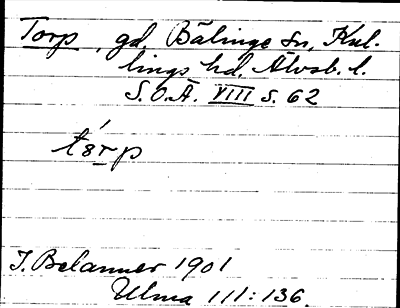 Torp, gd, Bälinge sn, Kul-
lings hd, Älvsb. l.
S.O.Ä. VIII s. 62
tórp
J. Belanner 1901
Ulma 111:136.